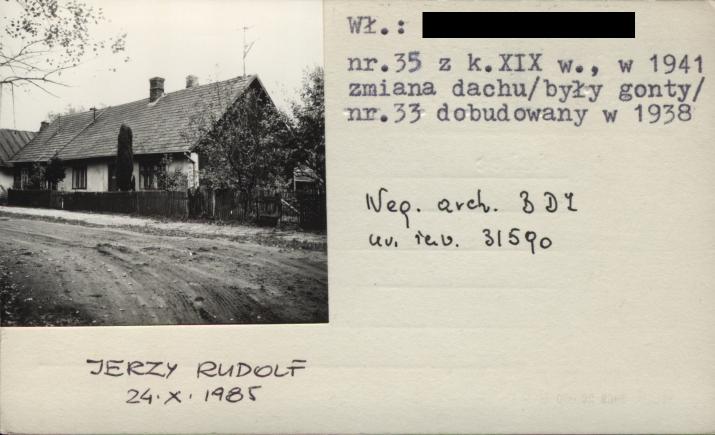 Wł.:
nr.35 z k.XIX w., w 1941
zmiana dachu/były gonty/
nr.33 dobudowany w 1938
Neg. arch. BDZ
nr. rew. 31590
JERZY RUDOLF
24.X.1985